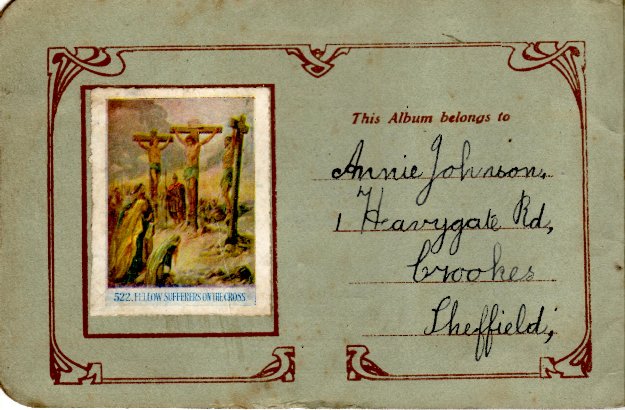 This Album belongs to
Annie Johnson,
1 Heavygate Rd,
Crookes
Sheffield,
522. FELLOW SUFFERERS ON THE CROSS